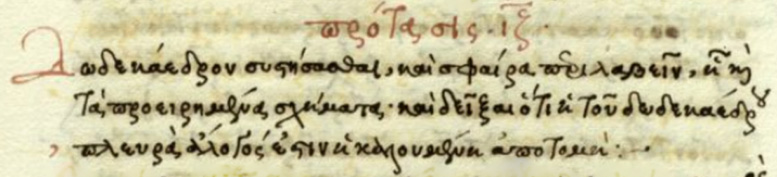 πρότασις ιζ
Δωδεκάεδρον συστήσασθαι, καὶ σφαίρα περιλαβεῖν, ᾗ καὶ
τὰ προειρημένα σχήματα· καὶ δεῖξαι ὅτι ἡ τοῦ δωδεκαέδρου
πλευρὰ ἄλογός ἐστιν ἡ καλουμένη ἀποτομή :—